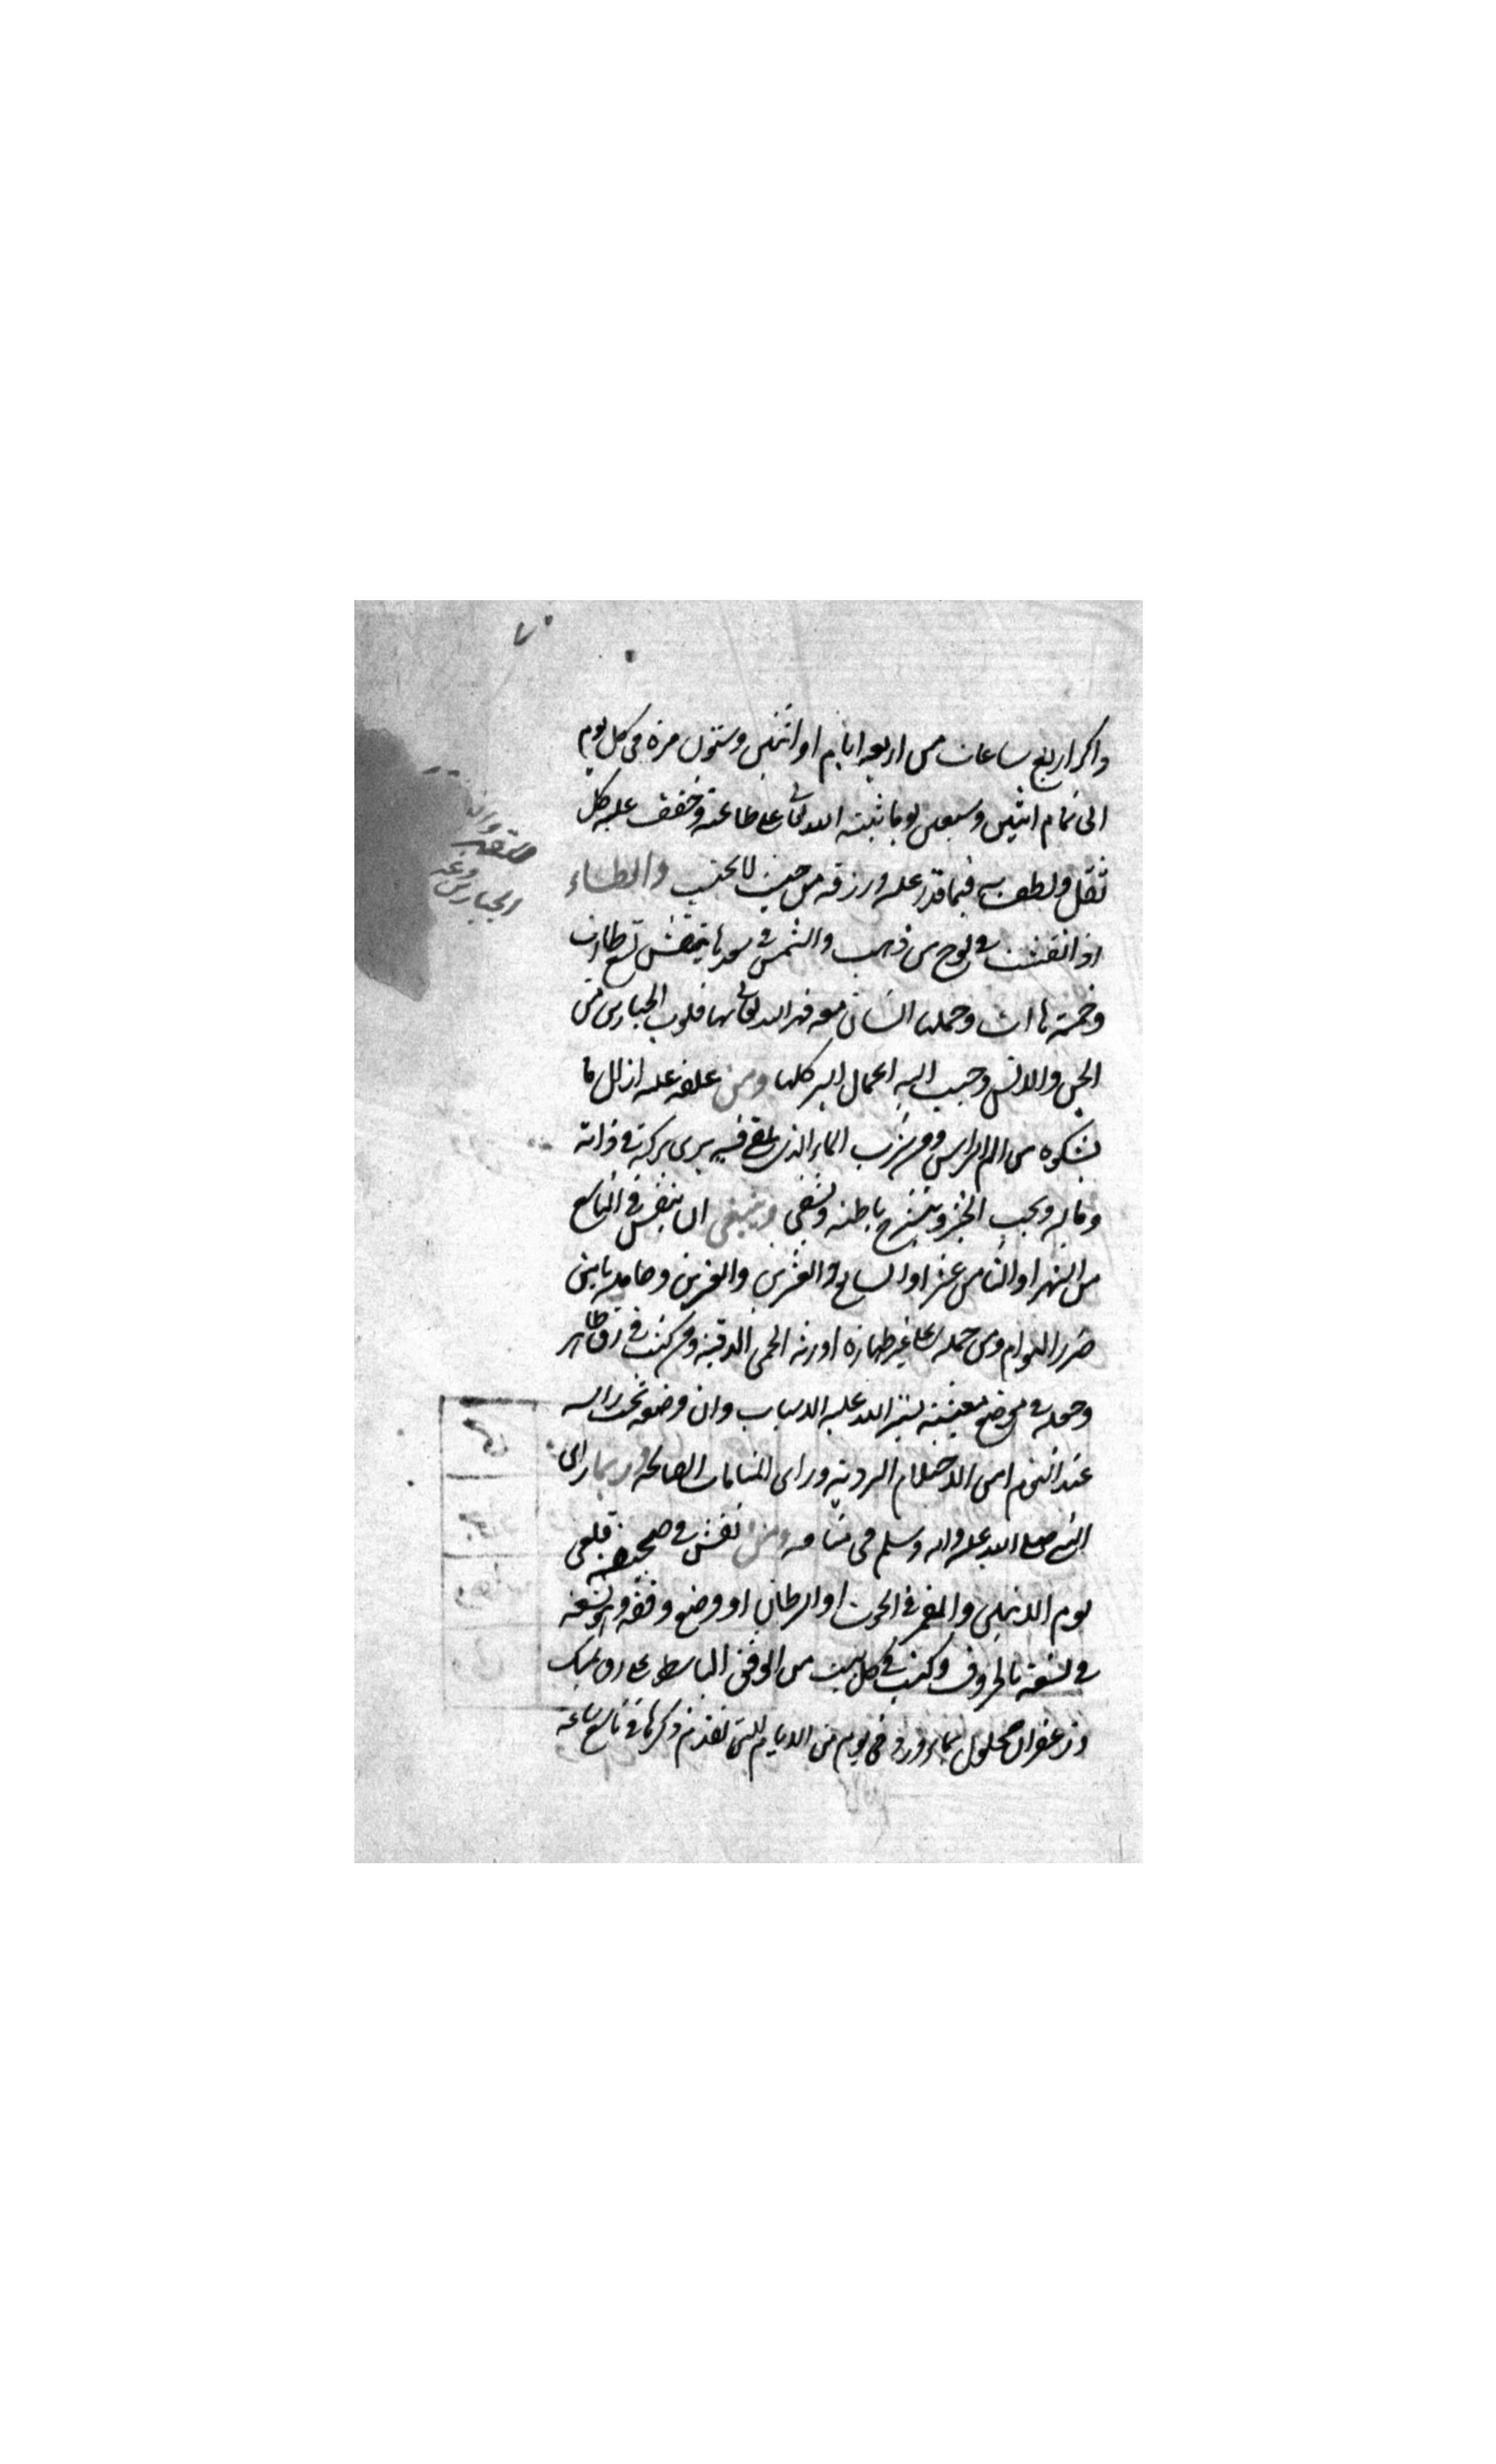 واكد اربع ساعات من اربعه ايام او اثنين وستون مرة فى كل يوم
الى تمام اثنين وسبعين يوما ثبته الله تعالى على طاعته وخفف عليه كل
ثقل ولطف به فيما قدر عليه ورزقه من حيث لا يحتسب والطاء
اذا نقشت فى لوح من ذهب والشمس فى تسع طاات
وخمسة هاات وحملها انسان معه قهر الله تعالى بها قلوب الجبارين من
الجن والانس وحبب اليه اعمال البر كلها ومن علقه عليه ازال ما
يشكوه من الم الراس ومن شرب الماء الذى يلقى فيه يرى بركة فى ذاته
وماله ويحب الخير وينشرح باطنه وينبغى ان ينقش فى التاسع
من الشهر او الثامن عشر او السابع والعشرين وحامله يامن
ضرر الهوام ومن حمله على غير طهارة اورثه الحمى الدقية ومن كتبه فى رق طاهر
وحمله فى موضع معيشته يسر الله عليه الاسباب وان وضعه تحت راسه
عند النوم امن الاحلام الردية وراى المنامات الصالحة وربما راى
النبى صلى الله عليه واله وسلم فى منامه ومن نقش فى صحيفة قلعى
يوم الاثنين والقمر فى الحوت او السرطان او وضع وفقه وهو تسعة
فى تسعة بالحروف وكتب فى كل بيت من الوفق الباسط على رق بمسك
وزعفران محلول بماء ورد فى يوم من الايام التى تقدم ذكرها فى تاسع ساعه
الجبارين وغه